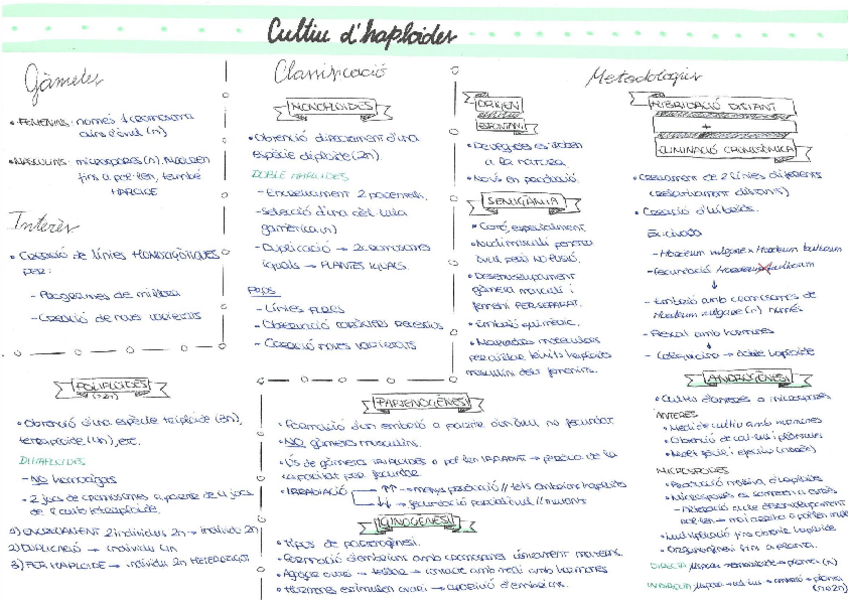 Cultiu d'haploides
Gàmetes
• FEMENINS: només 1 cromosoma
dins l'òvul (n)
• MASCULINS: microspores (n). Maduren
fins a pol·len, també
HAPLOIDE
Interès
• Creació de línies HOMOZIGÒTIQUES
per:
- Programes de millora
- Creació de noves varietats
Classificació
MONOPLOIDES
• Obtenció directament d'una
espècie diploide (2n)
DOBLE HAPLOIDES
- Encreuament 2 parentals.
- Selecció d'una cèl·lula
gamètica (n)
- Duplicació → 2 cromosomes
iguals → PLANTES IGUALS.
- Línies PURES
- Observació caràcters recessius
- Creació noves varietats
POLIPLOIDES
(>2n)
• Obtenció d'una espècie triploide (3n),
tetraploide (4n), etc.
DIHAPLOIDES
- NO homozigots
- 2 jocs de cromosomes a partir de 4 jocs
de l'autotetraploide.
1) ENCREUAMENT 2 individus 2n → individu 2n
2) DUPLICACIÓ → individu 4n
3) FER HAPLOIDE → individu 2n HETEROZIGOT
Metodologies
ORIGEN
ESPONTANI
• De vegades es troben
a la natura.
• Només en producció.
SEMIGÀMIA
• Cotó, especialment
• Nucli masculí penetra
òvul però NO FUSIÓ.
• Desenvolupament
gàmeta masculí i
femení PER SEPARAT.
• Embrió quimèric.
• Marcadors moleculars
per aïllar teixits haploides
masculins dels femenins.
HIBRIDACIÓ DISTANT
+
ELIMINACIÓ CROMOSÒMICA
• Creuament de 2 línies diferents
(relativament distants)
• Creació d'híbrids.
- Hordeum vulgare x Hordeum bulbosum
- Fecundació
↓
- Embrió amb cromosomes de
Hordeum vulgare (n) només
- Rescat amb hormones
↓
- Colquicina → doble haploide
PARTENOGÈNESI
• Formació d'un embrió a partir d'un òvul no fecundat
• NO gàmeta masculins.
• Ús de gàmeta IRRADIADES o pol·len IRRADIAT → pèrdua de la
capacitat per fecundar.
• IRRADIACIÓ ↑↑ → menys producció // tots embrions haploides
↓↓ → fecundació parcial òvul // mutants
GINOGÈNESI
• Tipus de partenogènesi.
• Formació d'embrions amb cromosomes únicament materns.
• Agafar ovari → tallar → contacte amb medi amb hormones
• Hormones estimulen ovari → creació d'embrions.
ANDROGÈNESI
• Cultiu d'anteres o micròspores
ANTERES
• Medi de cultiu amb hormones
• Obtenció de cal·lus i plàntules
MICRÒSPORES
• Producció massiva d'haploides
• Duplicació fins obtenir haploide
• Organogènesi fins a planta.
DIRECTA
INDIRECTA